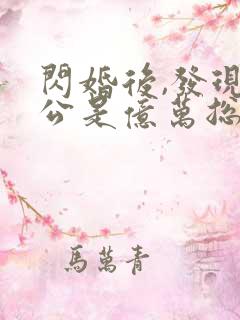 閃婚後,發現
公是億萬總
馬萬青